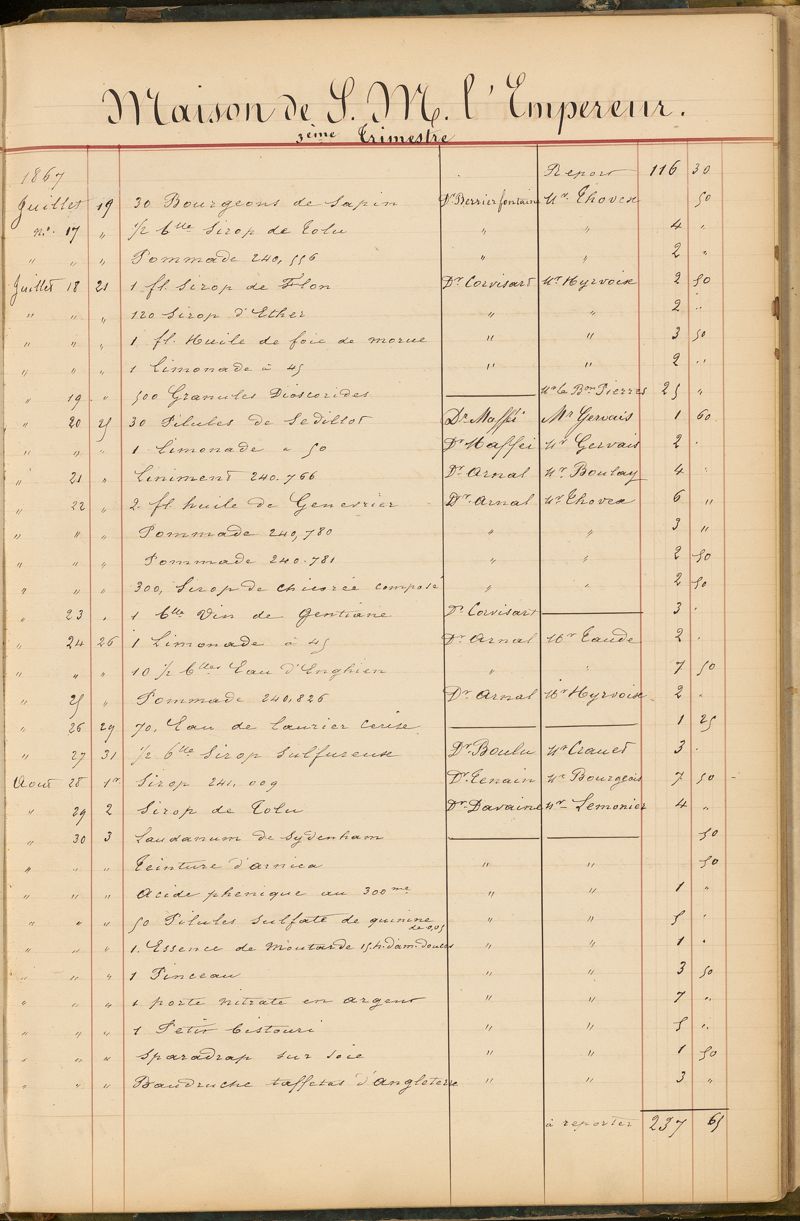 Maison de S. M. l'Empereur.
3ème Trimestre
1867 Report 116 30
Juillet 19 30 Bourgeons de Sapin Dr Berrier fontaine Mr. Thovex 50
no. 17 " 1/2 Blle Sirop de Tolu " " 4 "
" " " Pommade 240,556 " " 2 "
Juillet 18 21 1 fl. Sirop de Flon Dr Corvisart Mr Hyrvoix 2 50
" " " 120 Sirop d'Ether " " 2 "
" " " 1 fl. Huile de foie de morue " " 3 50
" " " 1 Limonade à 45 " " 2 "
" 19 " 500 Granules Dioscorides Bon Pierres 25 "
" 20 25 30 Pilules de Sedillot Dr Maffei Mr Gervais 1 60
" " " 1 Limonade à 50 Dr Maffei Mr Gervais 2 "
" 21 " Liniment 240.766 Dr Arnal Mr Boulay 4 "
" 22 " 2 fl huile de Genevrier Dr Arnal Mr Thovex 6 "
" " " Pommade 240,780 " " 3 "
" " " Pommade 240.781 " " 2 50
" " " 300, Sirop de chicorée composé " " 2 50
" 23 " 1 Blle Vin de Gentiane Dr Corvisart 3 "
" 24 26 1 Limonade à 45 Dr Arnal Mr Taude 2 "
" " " 10 1/2 Blles Eau d'Enghien " " 7 50
" 25 " Pommade 240,826 Dr Arnal Mr Hyrvoix 2 "
" 26 29 70, Eau de laurier cerise 1 25
" 27 31 1/2 Blle Sirop Sulfureux Dr Boulu Mr Crauet 3 "
Aout 28 1er Sirop 241,009 Dr Tenain Mr Bourgeois 7 50
" 29 2 Sirop de Tolu Dr Davaine Mr Lemonier 4 "
" 30 3 Laudanum de Sydenham 50
" " " Teinture d'arnica " " 50
" " " Acide phenique au 300me " " 1 "
" " " 50 Pilules Sulfate de quinine de 0,05 " " 5 "
" " " 1. Essence de Moutarde 15, h. d'am. douces " " 1 "
" " " 1 Pinceau " " 3 50
" " " 1 porte nitrate en argent " " 7 "
" " " 1 Petit bistouri " " 5 "
" " " Sparadrap sur soie " " 1 50
" " " Baudruche taffetas d'angleterre " " 3 "
à reporter 237 65